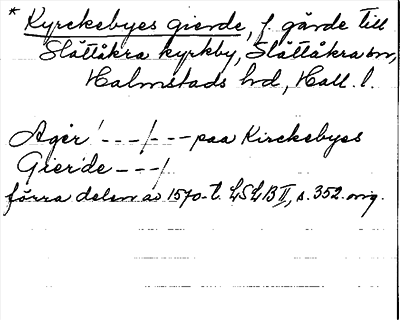 * Kyrckebyes gierde, f. gärde till
Slättåkra kyrkby, Slättåkra sn,
Halmstads hd, Hall. l.
Ager ! - - - / - - - paa Kirckebyes
Gierde - - - /
förra delen av 1570-t. LSLB II, s. 352. orig.